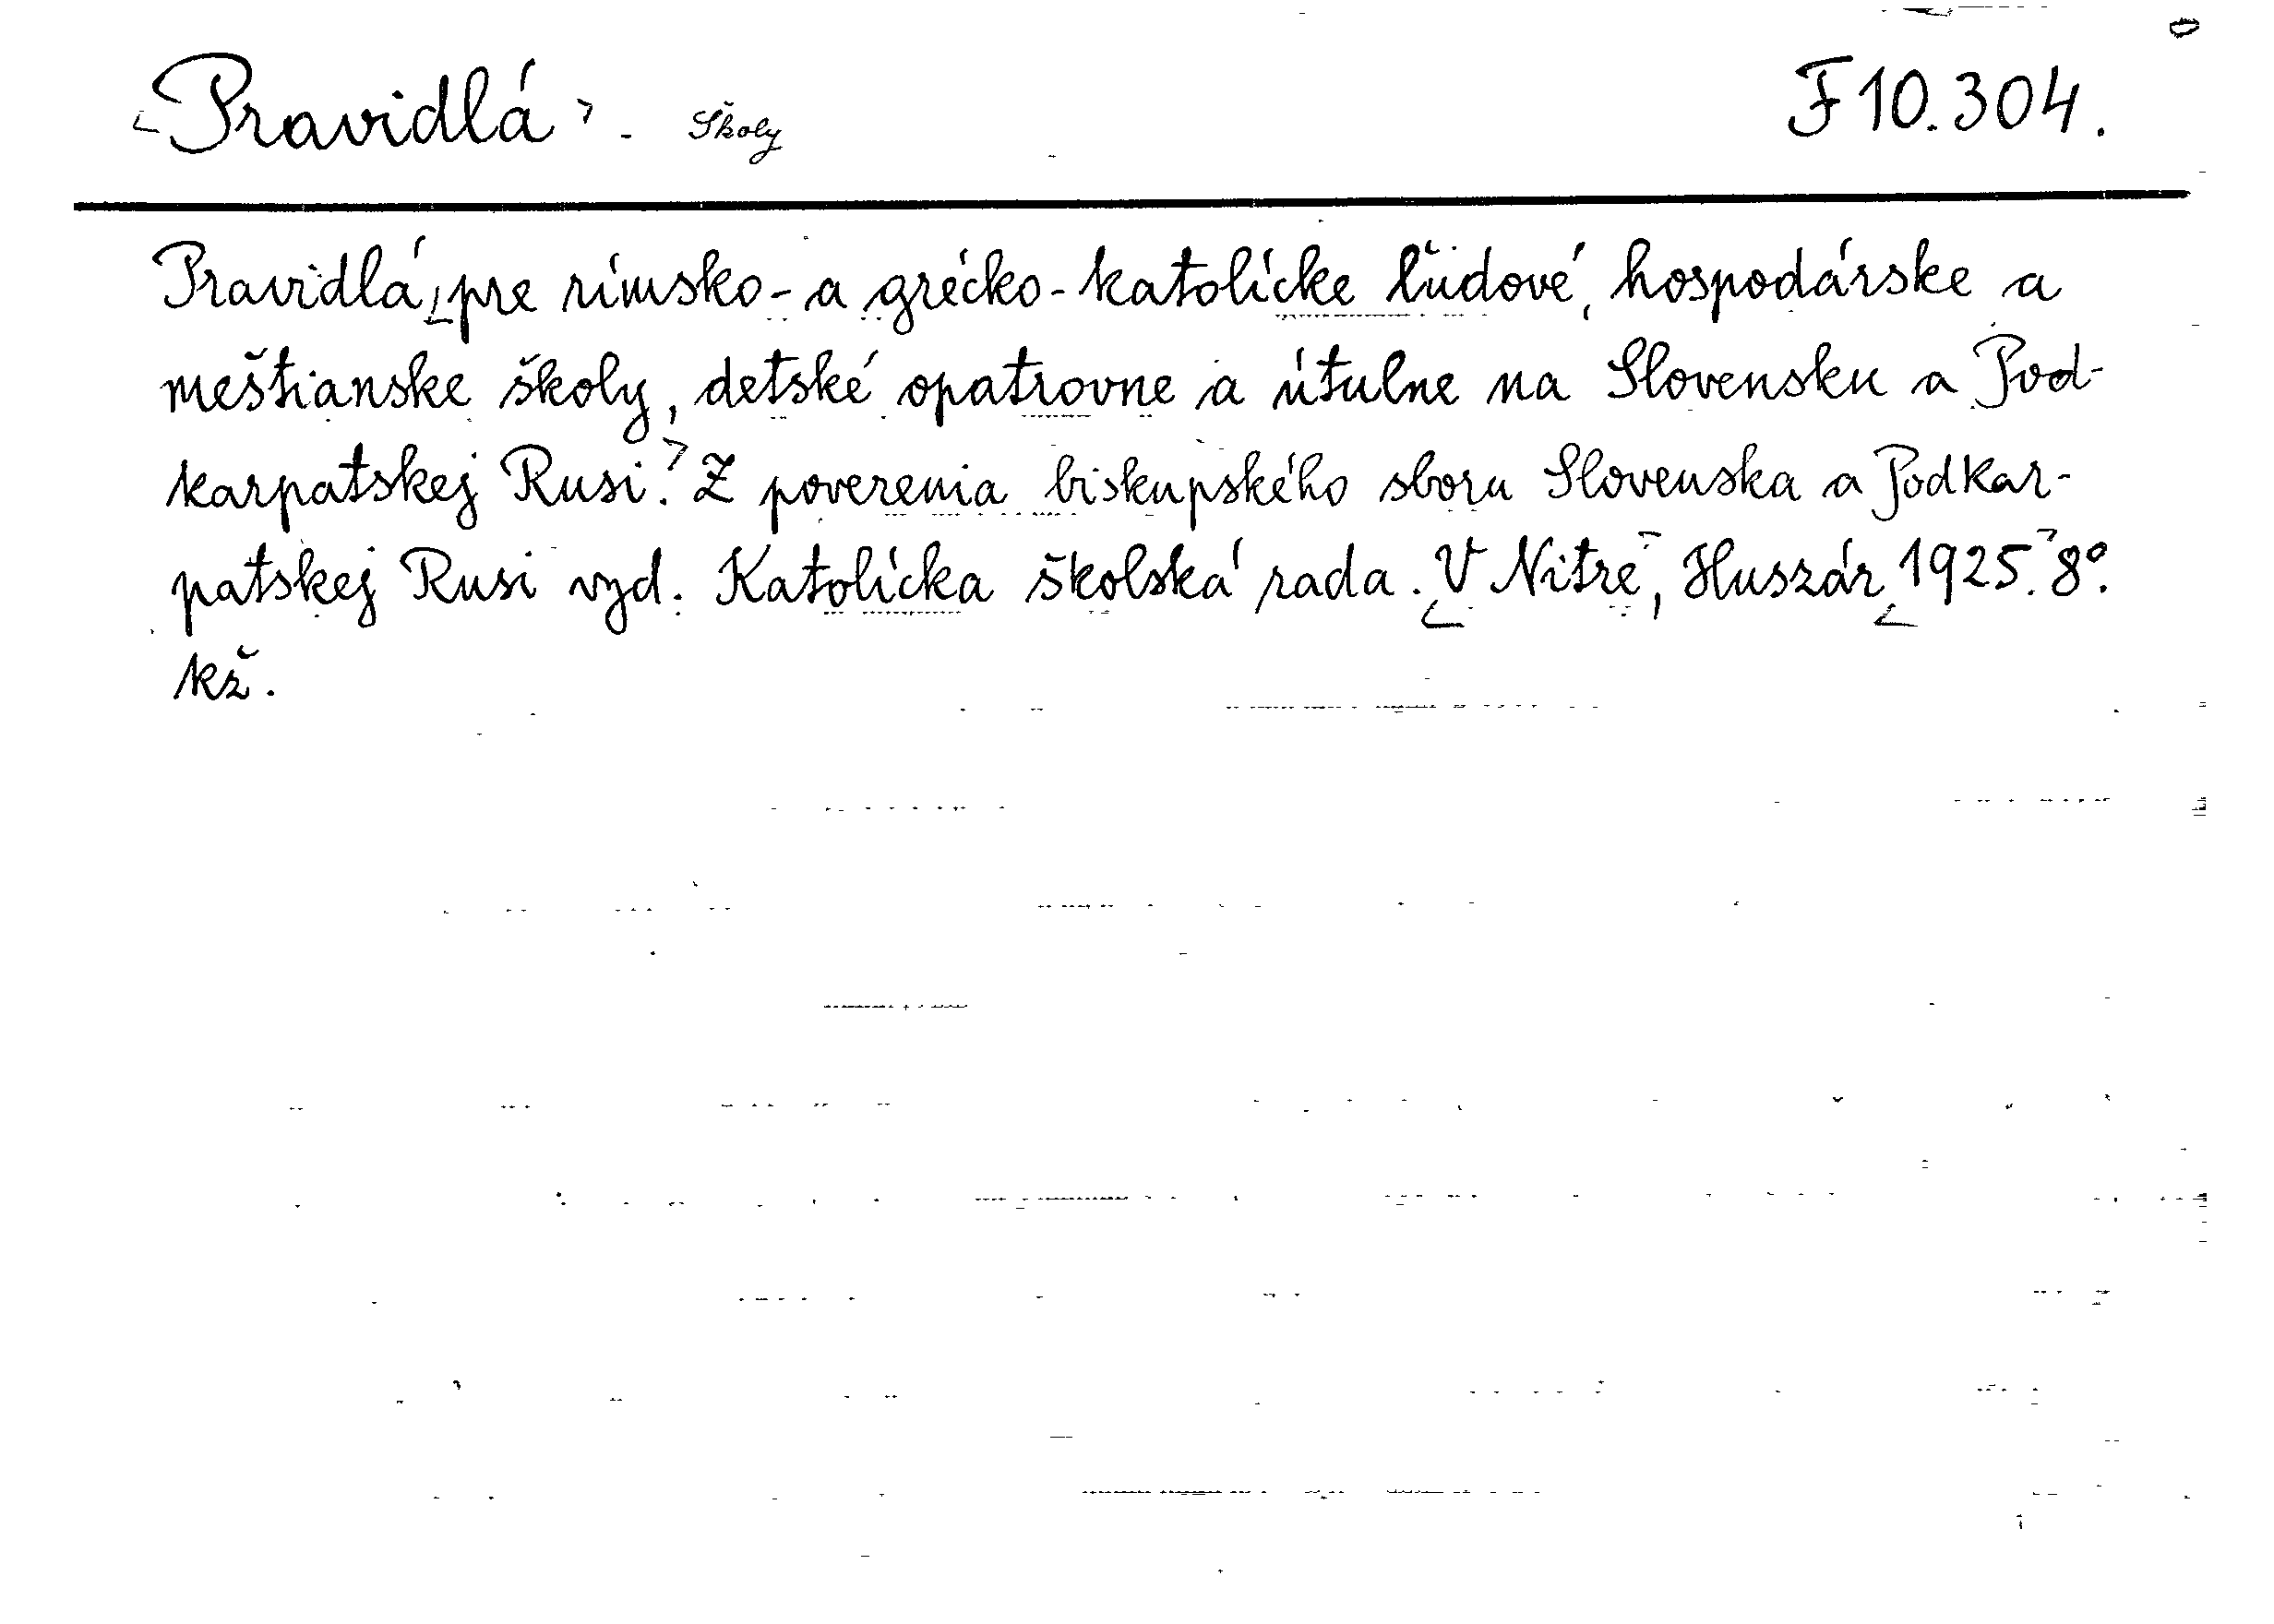 <Pravidlá> - Školy F 10.304.
Pravidlá <pre rímsko- a grécko-katolícke ľudové, hospodárske a
meštianske školy, detské opatrovne a útulne na Slovensku a Pod-
karpatskej Rusi.> Z poverenia biskupského sboru Slovenska a Podkar-
patskej Rusi vyd. Katolícka školská rada. <V Nitre>, Huszár <1925.> 8°.
kž.